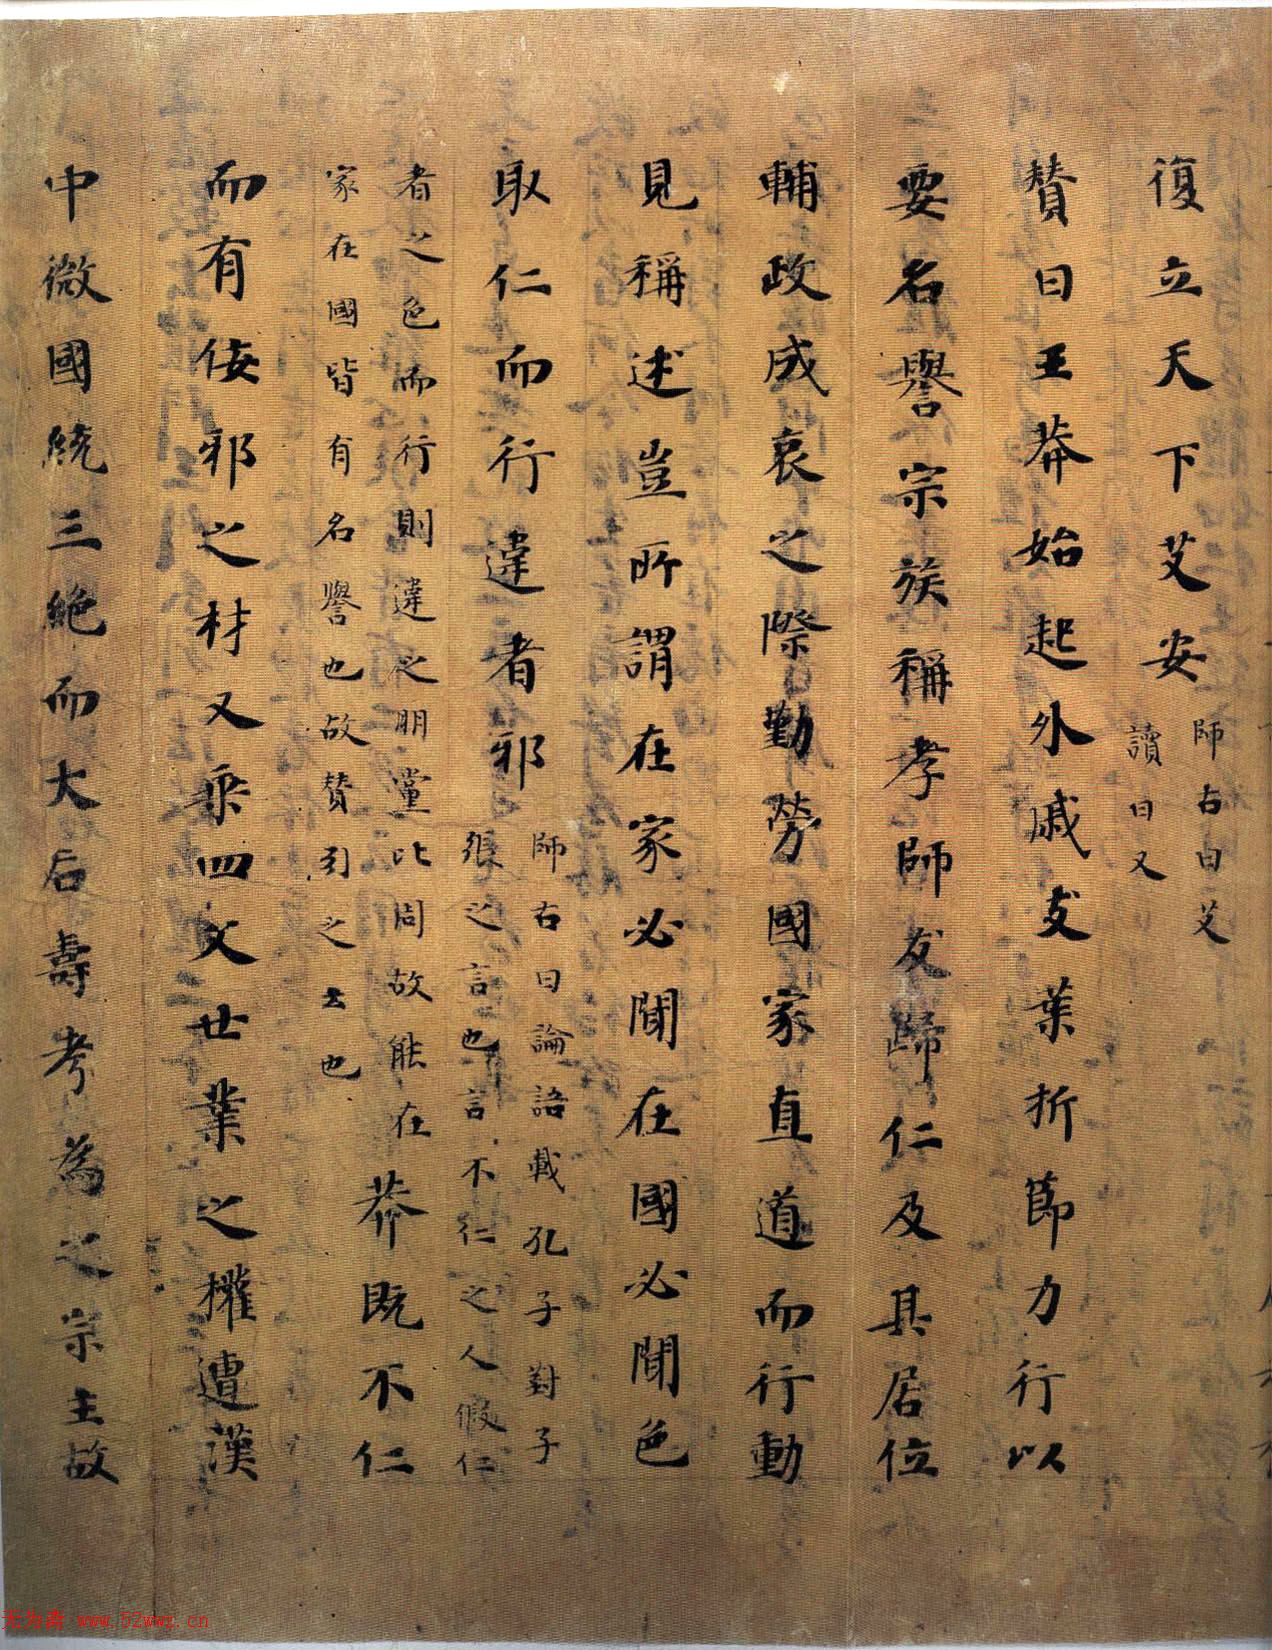 復立天下艾安
師古曰艾
讀曰乂
賛曰王莽始起外戚支葉折節力行以
要名譽宗族稱孝師友歸仁及其居位
輔政成哀之際勤勞國家直道而行動
見稱述豈所謂在家必聞在國必聞色
取仁而行違者邪
師古曰論語載孔子對子
張之言也言不仁之人假仁
者之色而行則違之明黨比周故能在
家在國皆有名譽也故賛引之云也
莽既不仁
而有佞邪之材又乗四父世業之權遭漢
中微國統三絶而大后壽考為之宗主故
无为斋 www.52wwz.cn